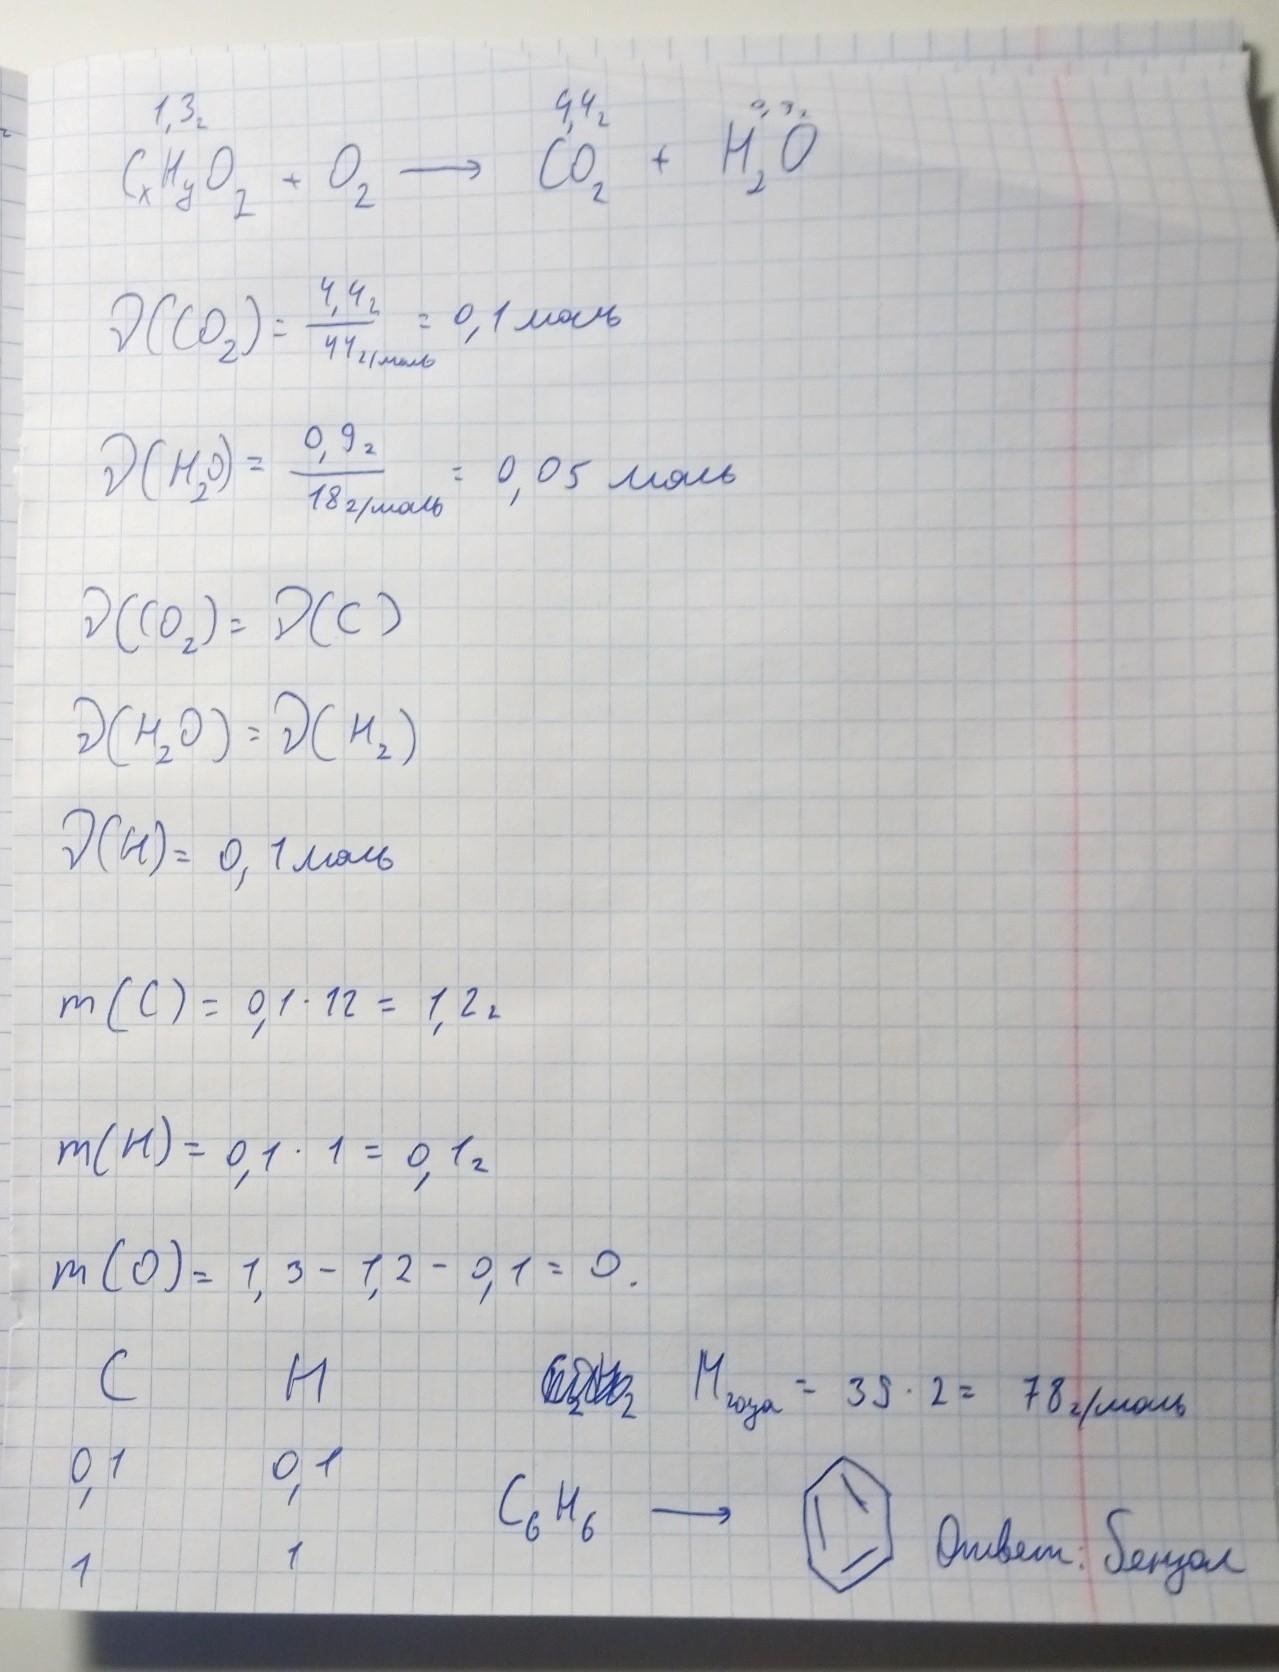 1,3г 4,4г 0,9г
CxHyO2 + O2 → CO2 + H2O
ν(CO2) = 4,4г / 44г/моль = 0,1 моль
ν(H2O) = 0,9г / 18г/моль = 0,05 моль
ν(CO2) = ν(C)
ν(H2O) = ν(H2)
ν(H) = 0,1 моль
m(C) = 0,1 · 12 = 1,2г
m(H) = 0,1 · 1 = 0,1г
m(O) = 1,3 - 1,2 - 0,1 = 0.
C H Mгоza = 39 · 2 = 78г/моль
0,1 0,1
C6H6 →
1 1 Ответ: бензол